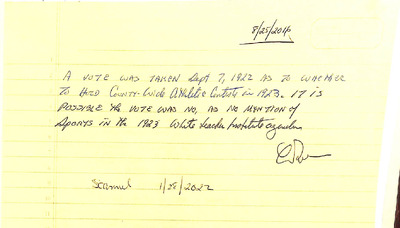 8/25/2014
A VOTE WAS TAKEN Sept 7, 1922 AS TO WHETHER
TO HOLD COUNTY-WIDE Athletic Contests in 1923. IT IS
POSSIBLE THE VOTE WAS NO, AS NO MENTION OF
SPORTS IN THE 1923 White teacher Institute agenda
Scanned 1/28/2022